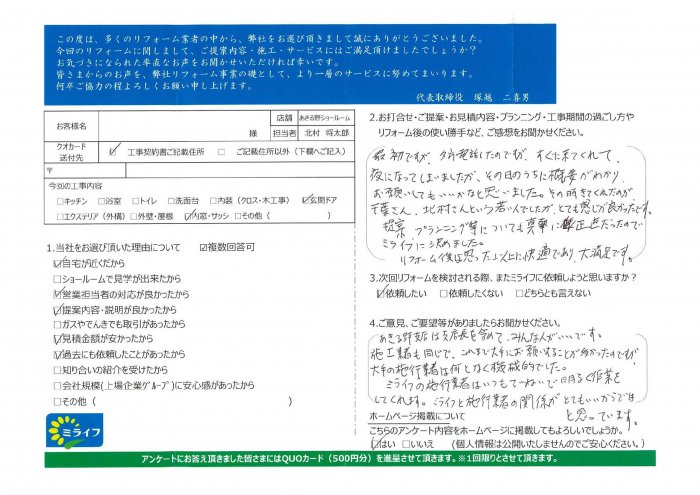 この度は、多くのリフォーム業者の中から、弊社をお選び頂きまして誠にありがとうございました。
今回のリフォームに関しまして、ご提案内容・施工・サービスにはご満足頂けましたでしょうか？
お気づきになられた率直なお声をお聞かせいただければ幸いです。
皆さまからのお声を、弊社リフォーム事業の礎として、より一層のサービスに努めてまいります。
何卒ご協力の程よろしくお願い申し上げます。
代表取締役 塚越 二喜男
お客様名 様
店舗 あきる野ショールーム
担当者 北村 将太郎
クオカード送付先 ☑工事契約書ご記載住所 □ご記載住所以外（下欄へご記入）
〒
今回の工事内容
□キッチン □浴室 □トイレ □洗面台 □内装（クロス・木工事） ☑玄関ドア
□エクステリア（外構） □外壁・屋根 ☑内窓・サッシ □その他（ ）
1.当社をお選び頂いた理由について ☑複数回答可
☑自宅が近くだから
□ショールームで見学が出来たから
☑営業担当者の対応が良かったから
☑提案内容・説明が良かったから
□ガスやでんきでも取引があったから
☑見積金額が安かったから
☑過去にも依頼したことがあったから
□知り合いの紹介を受けたから
□会社規模(上場企業グループ)に安心感があったから
□その他（ ）
ミライフ
2.お打合せ・ご提案・お見積内容・プランニング・工事期間の過ごし方や
リフォーム後の使い勝手など、ご感想をお聞かせください。
最初ですが、夕方電話したのですが、すぐに来てくれて、
夜になってしまいましたが、その日のうちに概要がわかり、
お願いしてもいいかなと思いました。その時きてくれたのが
千葉さん、北村さんという若い人でしたが、とても感じが良かったです。
提案 プランニング等についても真摯に
点だったので
ミライフに決めました。
リフォーム後は思った以上に快適であり、大満足です。
3.次回リフォームを検討される際、またミライフに依頼しようと思いますか？
☑依頼したい □依頼したくない □どちらとも言えない
4.ご意見、ご要望等がありましたらお聞かせください。
あきる野支店は支店長を含めて、みんな人がいいです。
施工業者も同じで、これまで大手にお願いすることが多かったのですが
大手の施行業者は何となく機械的でした。
ミライフの施行業者はいつもていねいで明るく作業を
してくれます。ミライフと施行業者の関係がとてもいいからでは
と思っています。
ホームページ掲載について
こちらのアンケート内容をホームページに掲載してもよろしいでしょうか。
☑はい □いいえ （個人情報は公開いたしませんのでご安心ください。）
アンケートにお答え頂きました皆さまにはQUOカード（500円分）を進呈させて頂きます。※1回限りとさせて頂きます。